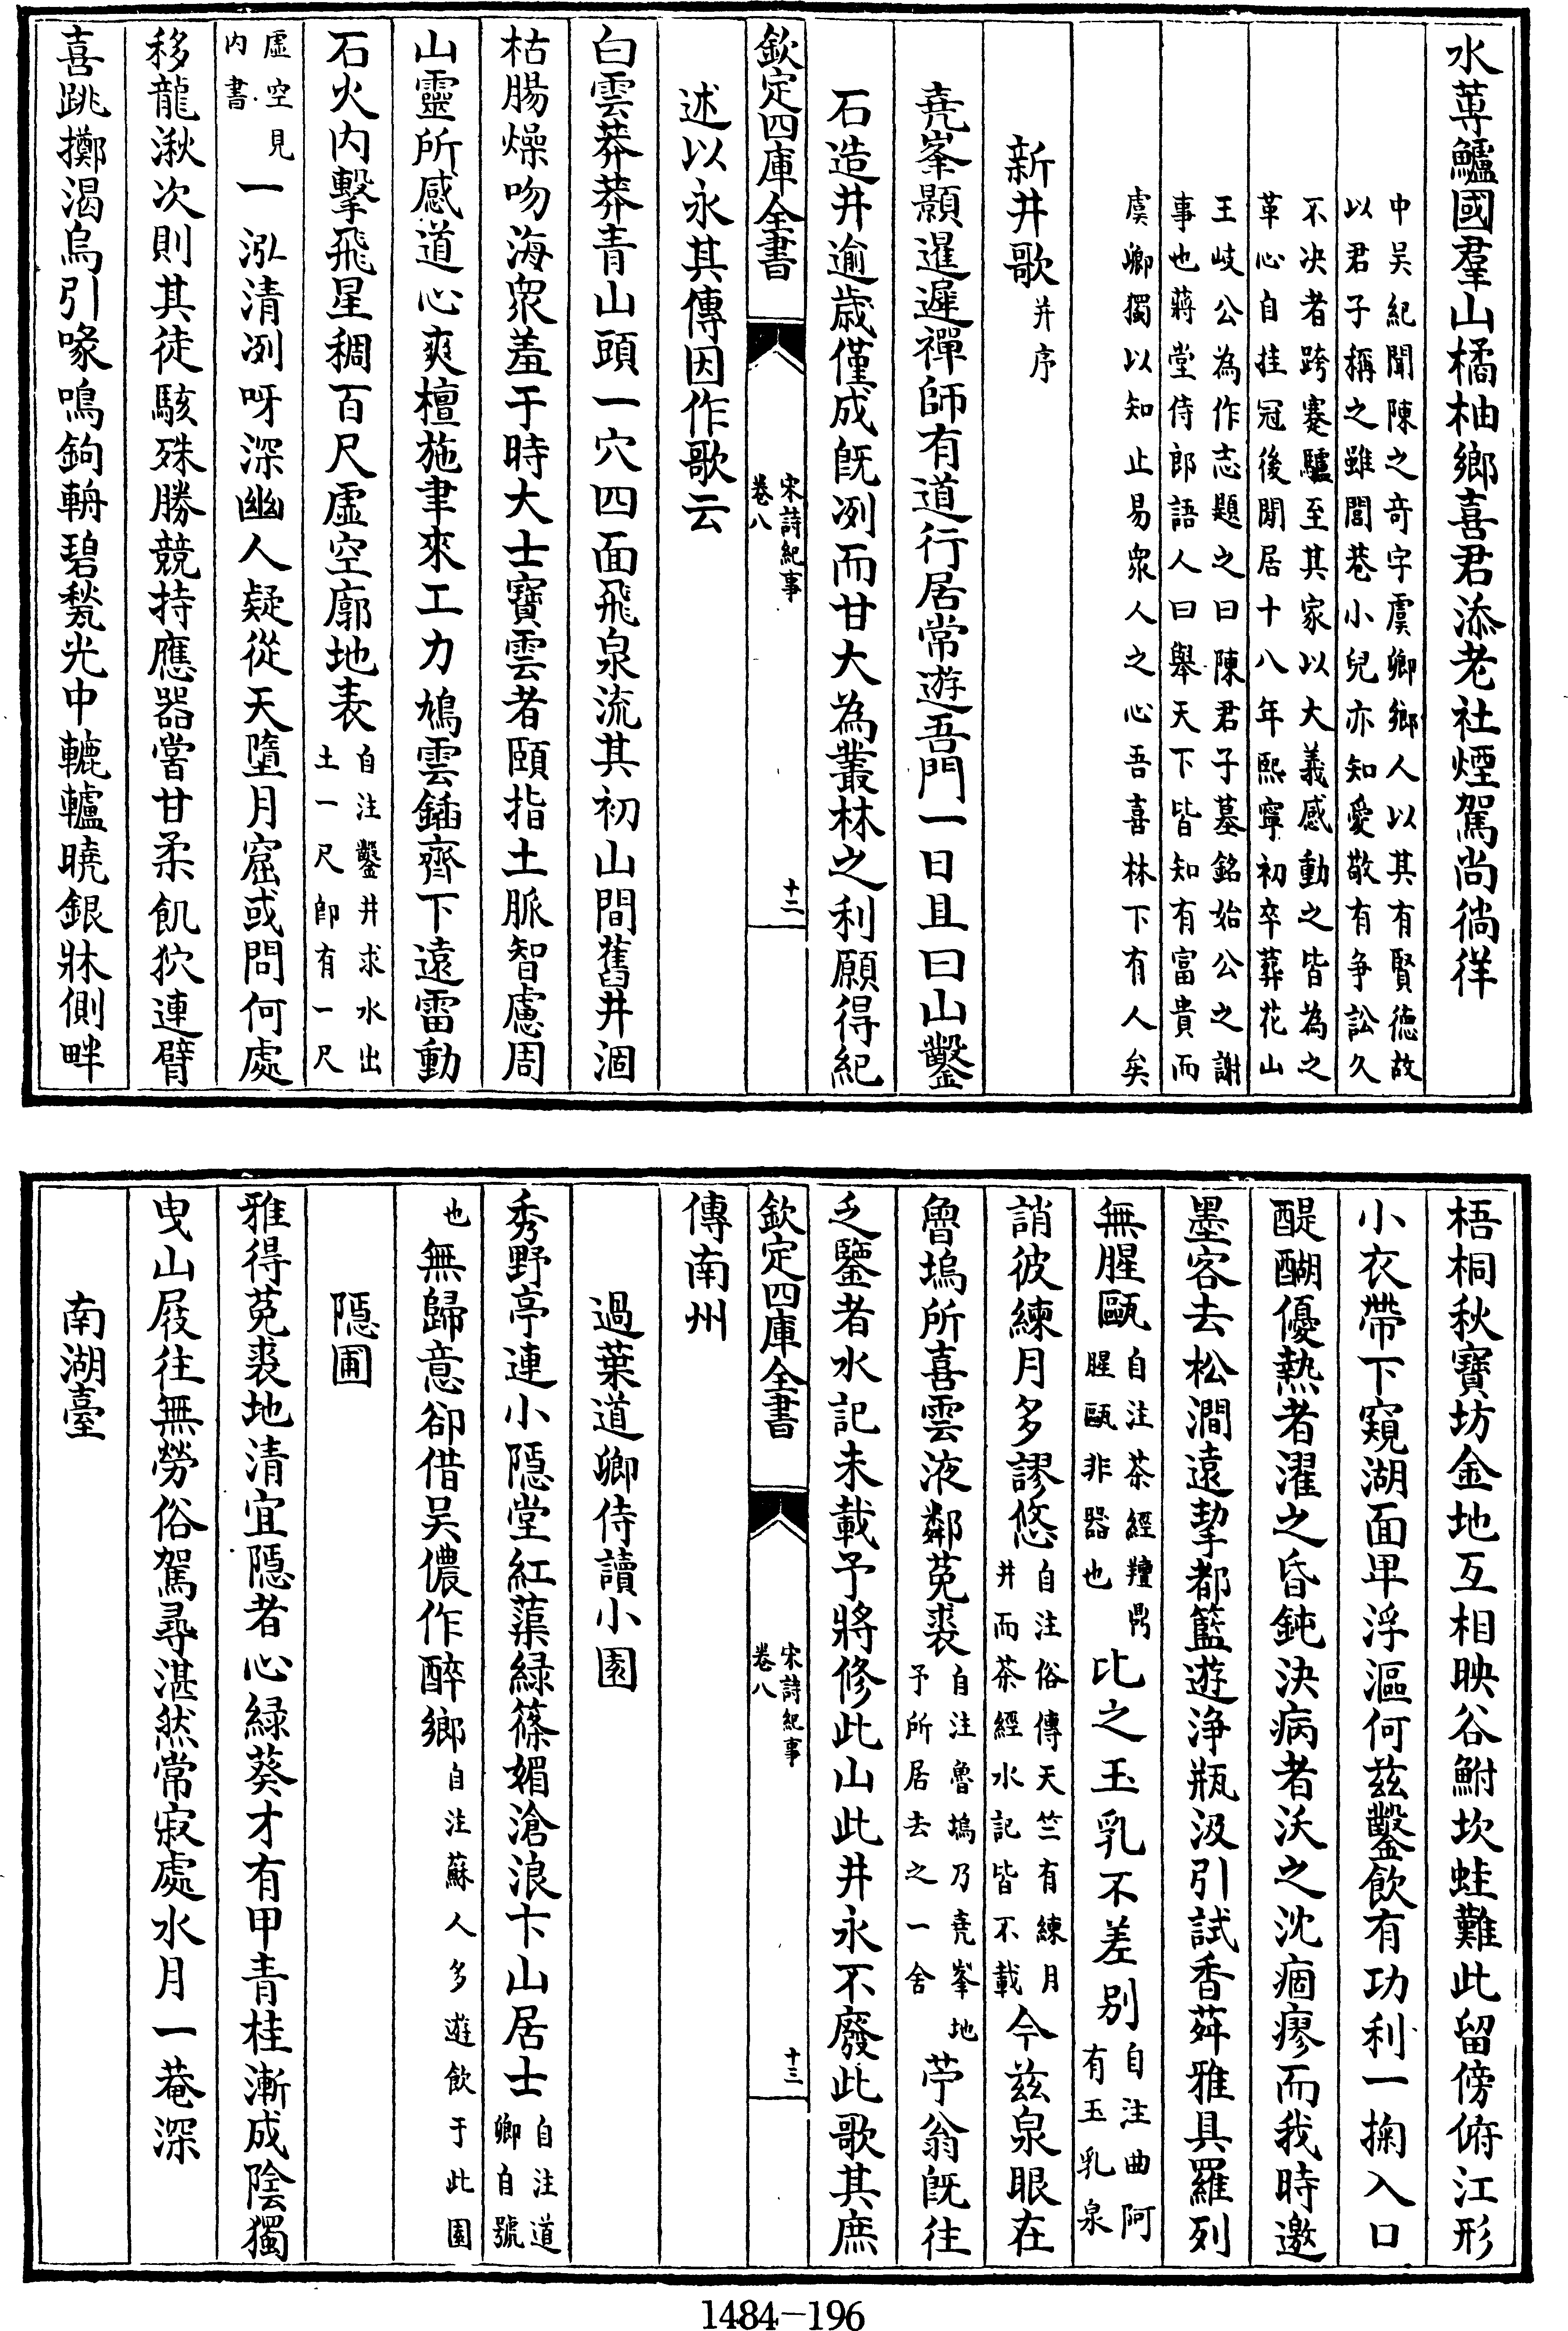 水蓴鱸國羣山橘柚鄉喜君添老社煙駕尚徜徉
中吳紀聞陳之奇字虞卿鄉人以其有賢德故
以君子稱之雖閭巷小兒亦知愛敬有爭訟久
不决者跨蹇驢至其家以大義感動之皆為之
革心自挂冠後閒居十八年熙寧初卒葬花山
王岐公為作志題之曰陳君子墓銘始公之謝
事也蔣堂侍郎語人曰舉天下皆知有富貴而
虞卿獨以知止易衆人之心吾喜林下有人矣
新井歌并序
堯峯顥暹遲禪師有道行居常遊吾門一日且曰山鑿
石造井逾歲僅成旣冽而甘大為叢林之利願得紀
欽定四庫全書
宋詩紀事
卷八
十二
述以永其傳因作歌云
白雲莽莽青山頭一穴四面飛泉流其初山間舊井涸
枯腸燥吻海衆羞于時大士寶雲者頤指土脈智慮周
山靈所感道心爽檀施聿來工力鳩雲鍤齊下遠雷動
石火内擊飛星稠百尺虛空廓地表自注鑿井求水出
土一尺即有一尺
虛空見
内書一泓清冽呀深幽人疑從天墮月窟或問何處
移龍湫次則其徒駭殊勝競持應器嘗甘柔飢狖連臂
喜跳擲渴烏引喙鳴鉤輈碧甃光中轆轤曉銀牀側畔
梧桐秋寶坊金地互相映谷鮒坎蛙難此留傍俯江形
小衣帶下窺湖面卑浮漚何兹鑿飲有功利一掬入口
醍醐優熱者濯之昏鈍決病者沃之沈痼瘳而我時邀
墨客去松澗遠挈都籃遊浄瓶汲引試香荈雅具羅列
無腥甌自注茶經羶鼎
腥甌非器也比之玉乳不差别自注曲阿
有玉乳泉
誚彼練月多謬悠自注俗傳天竺有練月
井而茶經水記皆不載今兹泉眼在
魯塢所喜雲液鄰菟裘自注魯塢乃堯峯地
予所居去之一舍苧翁旣往
乏鑒者水記未載予將修此山此井永不廢此歌其庶
欽定四庫全書
宋詩紀事
卷八
十三
傳南州
過葉道卿侍讀小園
秀野亭連小隱堂紅蕖緑篠媚滄浪卞山居士自注道
卿自號
也無歸意卻借吳儂作醉鄉自注蘇人多遊飲于此園
隱圃
雅得菟裘地清宜隱者心緑葵才有甲青桂漸成陰獨
曳山屐往無勞俗駕尋湛然常寂處水月一菴深
南湖臺
1484-196